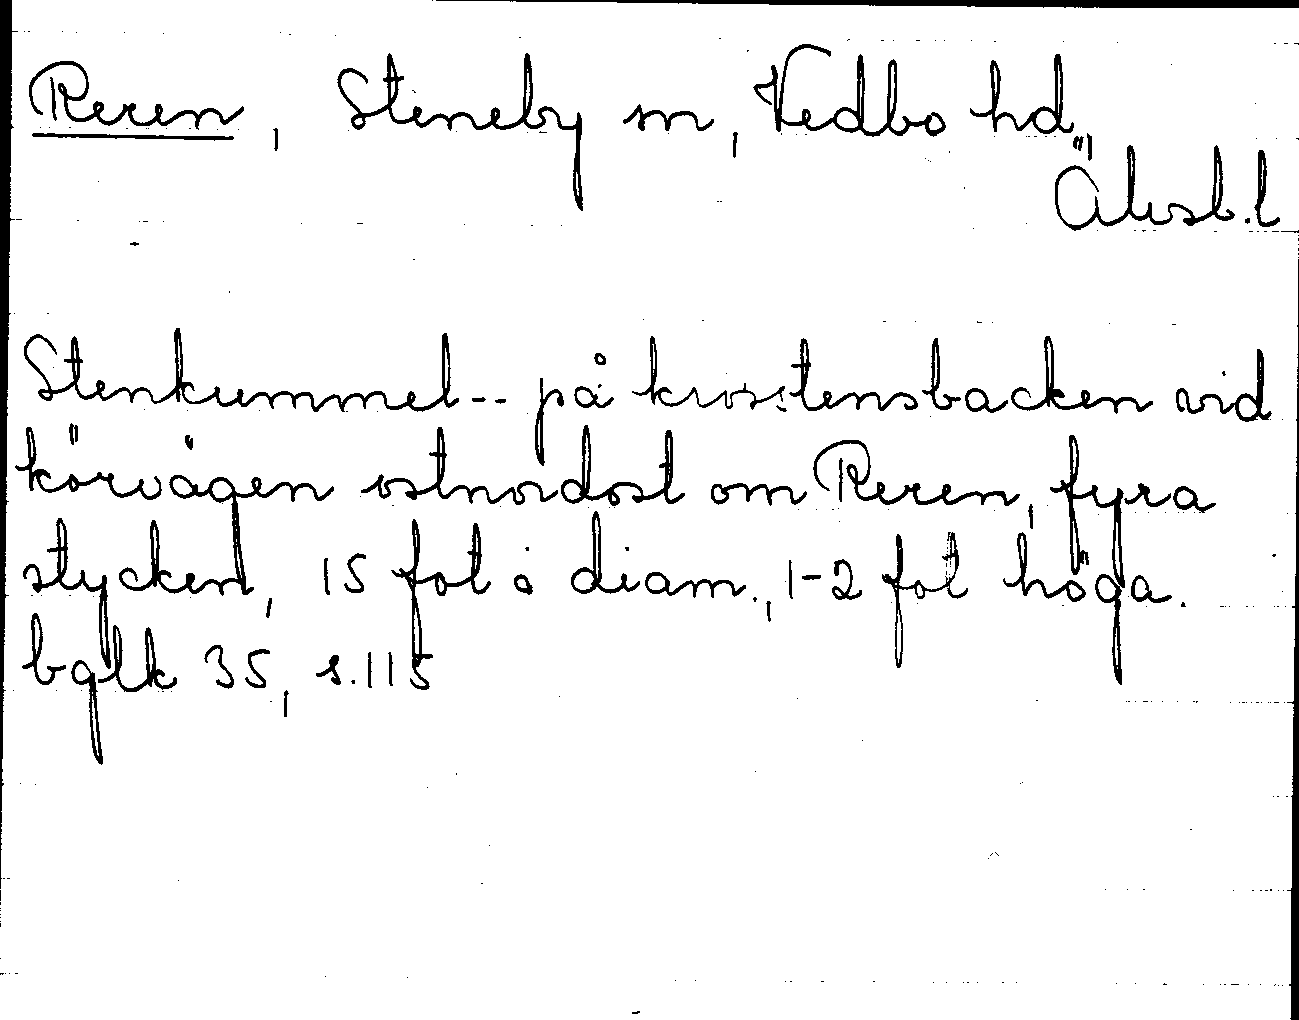 Reren, Steneby sn, Vedbo hd,
Älvsb.l
Stenkummel -- på krosstensbacken vid
körvägen ostnordost om Reren, fyra
stycken, 15 fot i diam., 1-2 fot höga.
bglk 35, s.115